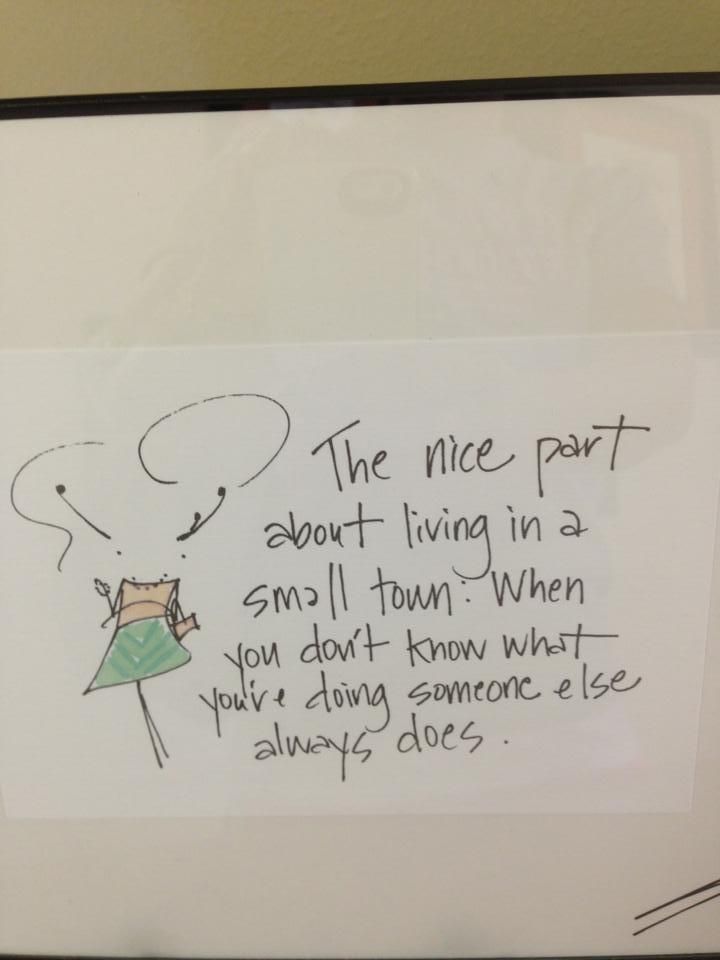 The nice part
about living in a
small town: When
you don't know what
you're doing someone else
always does.